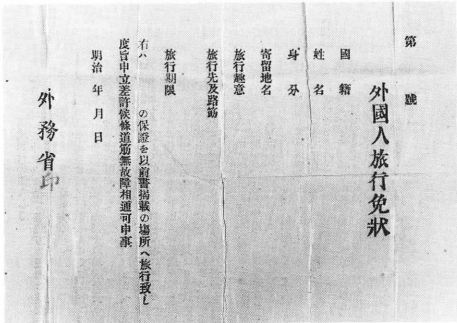 第　號
外國人旅行免狀
國籍
姓名
身分
寄留地名
旅行趣意
旅行先及路筋
旅行期限
右ハ　の保證を以前書揭載の場所へ旅行致し
度旨申立差許候條道筋無故障相通可申事
明治　年　月　日
外務省印